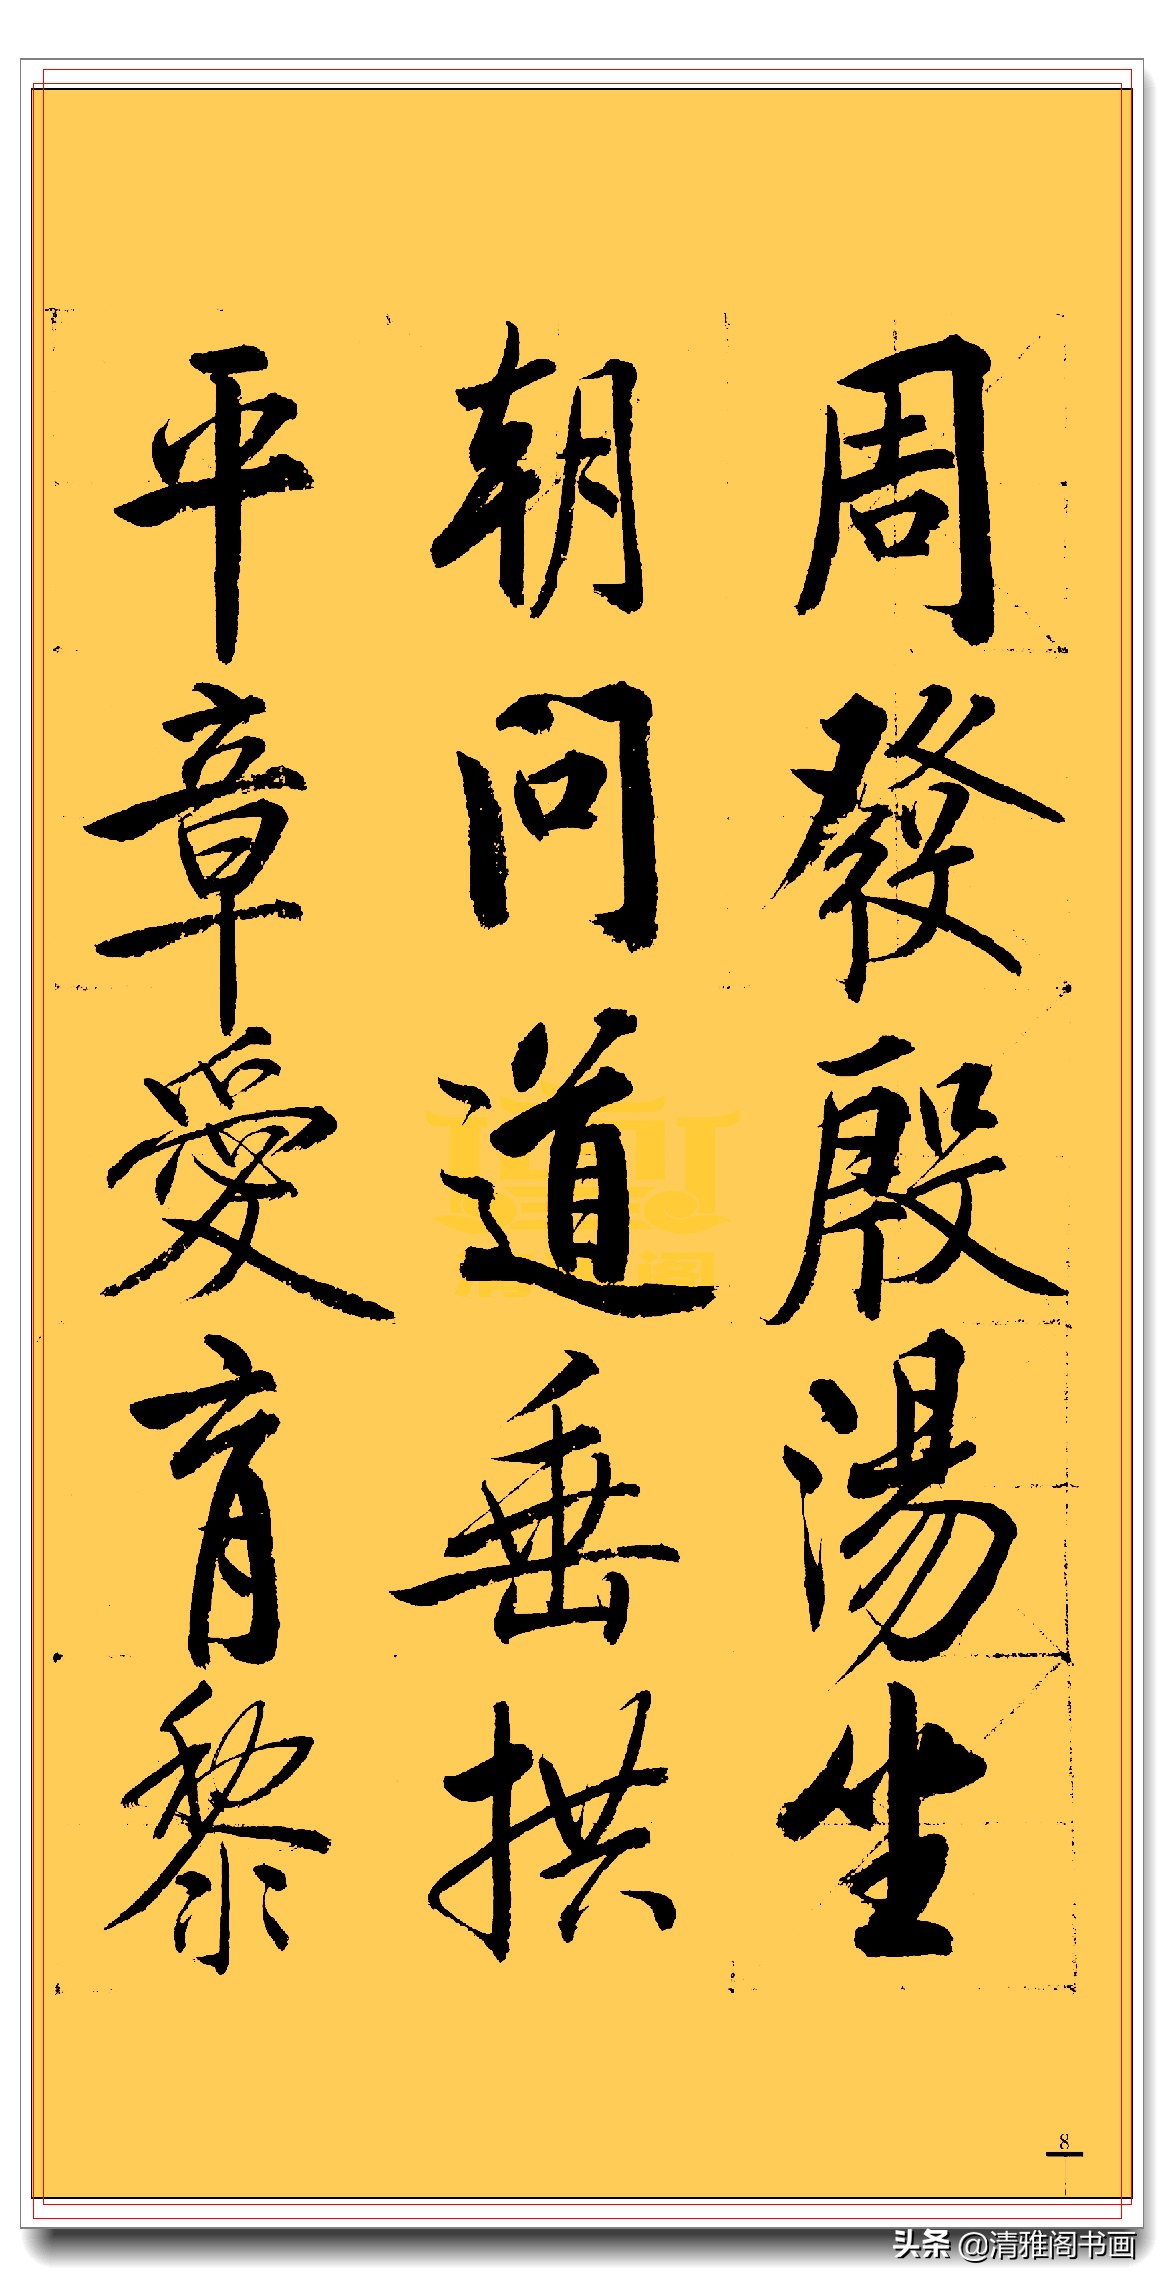 周發殷湯坐
朝問道垂拱
平章愛育黎
8
头条 @清雅阁书画